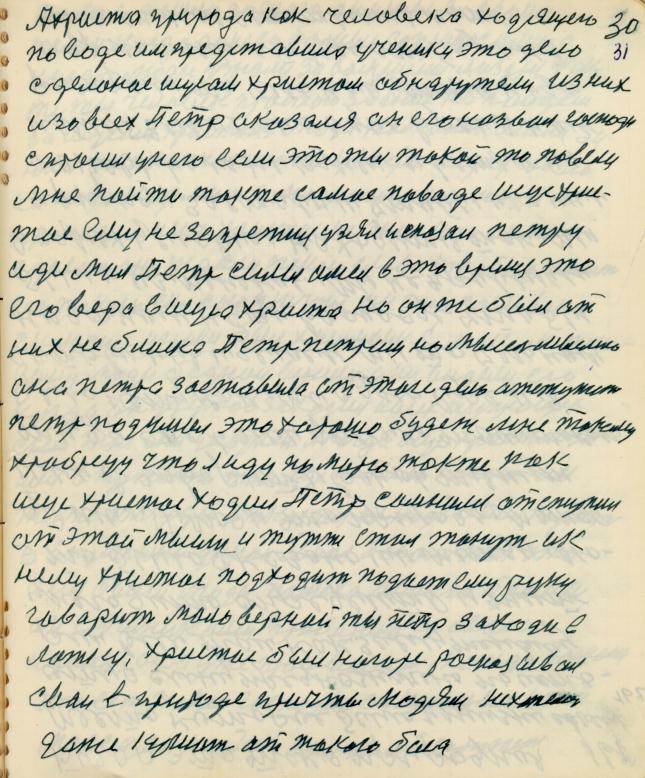 А христа природа как человека ходящего 30
по воде им представила ученики это дело 31
сделоное исусом христом обнаружели из них
изо всех Петр оказался он его назвал господи
спросил у него если это ты такой то повели
мне пойти также самое по воде исус хрис-
тос ему не запретил взял и сказал петру
иди мол Петр силы имел в это время это
его вера в исуса христа но он же был от
них не близка Петр петрим но мысль
она петра заставила от этого дела отступит
петр подумал это хорошо будет мне такому
храбрецу что я иду по морю также как
исус христос ходил Петр сомнили отступил
от этой мысли и тут же стал тонут и к
нему христос подходит подает ему руку
говорит маловерной ты петр заходи в
лотку, христос был на горе росказывал
свои в природе притчи людям
даже кушат от такого бога